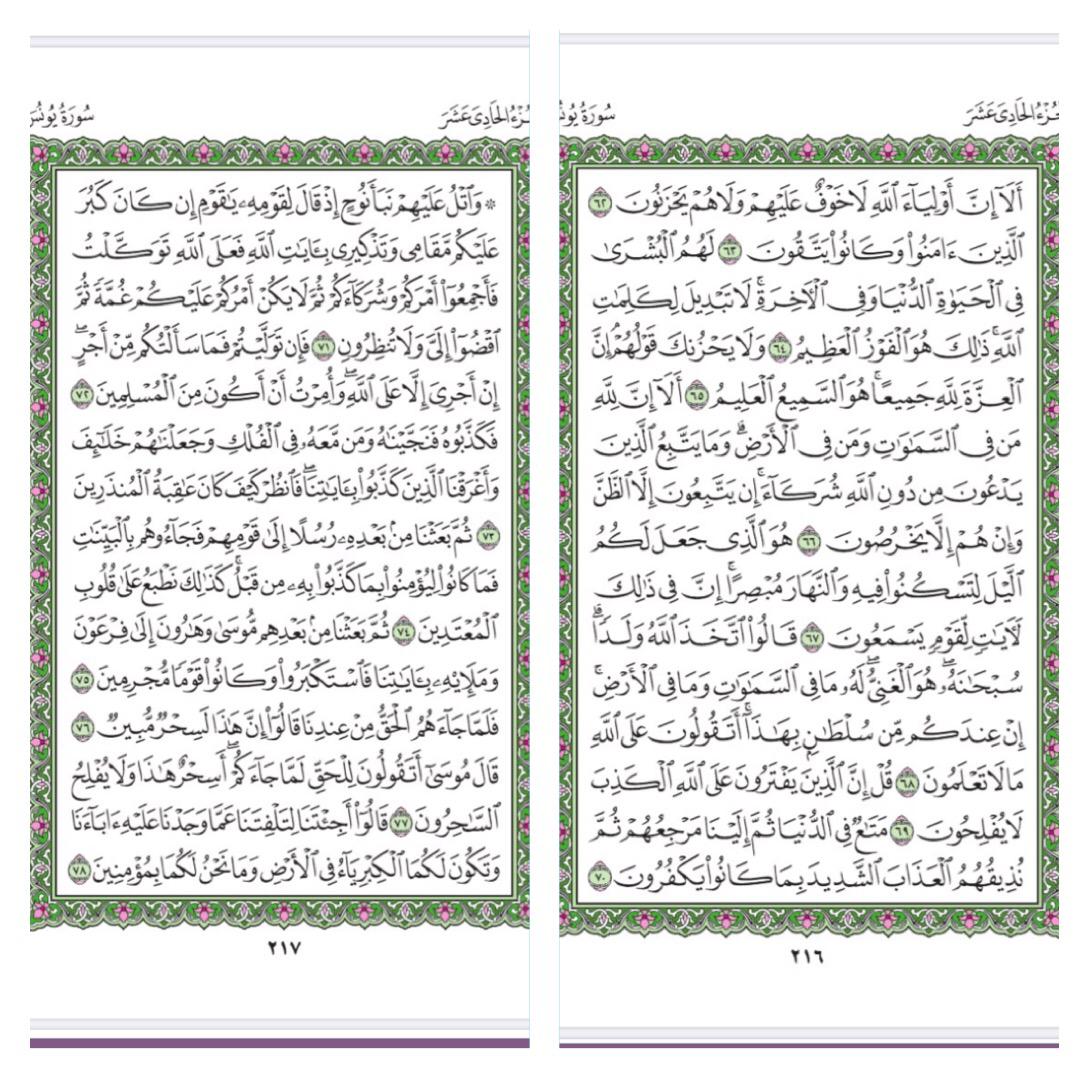 ـجُزْءُ الحَادِي عَشَرَ سُورَةُ يُونُـ
أَلَآ إِنَّ أَوْلِيَآءَ ٱللَّهِ لَا خَوْفٌ عَلَيْهِمْ وَلَا هُمْ يَحْزَنُونَ ٦٢
ٱلَّذِينَ ءَامَنُوا۟ وَكَانُوا۟ يَتَّقُونَ ٦٣ لَهُمُ ٱلْبُشْرَىٰ
فِى ٱلْحَيَوٰةِ ٱلدُّنْيَا وَفِى ٱلْءَاخِرَةِ ۚ لَا تَبْدِيلَ لِكَلِمَٰتِ
ٱللَّهِ ۚ ذَٰلِكَ هُوَ ٱلْفَوْزُ ٱلْعَظِيمُ ٦٤ وَلَا يَحْزُنكَ قَوْلُهُمْ ۘ إِنَّ
ٱلْعِزَّةَ لِلَّهِ جَمِيعًا ۚ هُوَ ٱلسَّمِيعُ ٱلْعَلِيمُ ٦٥ أَلَآ إِنَّ لِلَّهِ
مَن فِى ٱلسَّمَٰوَٰتِ وَمَن فِى ٱلْأَرْضِ ۗ وَمَا يَتَّبِعُ ٱلَّذِينَ
يَدْعُونَ مِن دُونِ ٱللَّهِ شُرَكَآءَ ۚ إِن يَتَّبِعُونَ إِلَّا ٱلظَّنَّ
وَإِنْ هُمْ إِلَّا يَخْرُصُونَ ٦٦ هُوَ ٱلَّذِى جَعَلَ لَكُمُ
ٱلَّيْلَ لِتَسْكُنُوا۟ فِيهِ وَٱلنَّهَارَ مُبْصِرًا ۚ إِنَّ فِى ذَٰلِكَ
لَءَايَٰتٍ لِّقَوْمٍ يَسْمَعُونَ ٦٧ قَالُوا۟ ٱتَّخَذَ ٱللَّهُ وَلَدًا ۗ
سُبْحَٰنَهُۥ ۖ هُوَ ٱلْغَنِىُّ ۖ لَهُۥ مَا فِى ٱلسَّمَٰوَٰتِ وَمَا فِى ٱلْأَرْضِ ۚ
إِنْ عِندَكُم مِّن سُلْطَٰنٍۭ بِهَٰذَآ ۚ أَتَقُولُونَ عَلَى ٱللَّهِ
مَا لَا تَعْلَمُونَ ٦٨ قُلْ إِنَّ ٱلَّذِينَ يَفْتَرُونَ عَلَى ٱللَّهِ ٱلْكَذِبَ
لَا يُفْلِحُونَ ٦٩ مَتَٰعٌ فِى ٱلدُّنْيَا ثُمَّ إِلَيْنَا مَرْجِعُهُمْ ثُمَّ
نُذِيقُهُمُ ٱلْعَذَابَ ٱلشَّدِيدَ بِمَا كَانُوا۟ يَكْفُرُونَ ٧٠
٢١٦
ـجُزْءُ الحَادِي عَشَرَ سُورَةُ يُونُس
۞ وَٱتْلُ عَلَيْهِمْ نَبَأَ نُوحٍ إِذْ قَالَ لِقَوْمِهِۦ يَٰقَوْمِ إِن كَانَ كَبُرَ
عَلَيْكُم مَّقَامِى وَتَذْكِيرِى بِـَٔايَٰتِ ٱللَّهِ فَعَلَى ٱللَّهِ تَوَكَّلْتُ
فَأَجْمِعُوٓا۟ أَمْرَكُمْ وَشُرَكَآءَكُمْ ثُمَّ لَا يَكُنْ أَمْرُكُمْ عَلَيْكُمْ غُمَّةً ثُمَّ
ٱقْضُوٓا۟ إِلَىَّ وَلَا تُنظِرُونِ ٧١ فَإِن تَوَلَّيْتُمْ فَمَا سَأَلْتُكُم مِّنْ أَجْرٍ ۖ
إِنْ أَجْرِىَ إِلَّا عَلَى ٱللَّهِ ۖ وَأُمِرْتُ أَنْ أَكُونَ مِنَ ٱلْمُسْلِمِينَ ٧٢
فَكَذَّبُوهُ فَنَجَّيْنَٰهُ وَمَن مَّعَهُۥ فِى ٱلْفُلْكِ وَجَعَلْنَٰهُمْ خَلَٰٓئِفَ
وَأَغْرَقْنَا ٱلَّذِينَ كَذَّبُوا۟ بِـَٔايَٰتِنَا ۖ فَٱنظُرْ كَيْفَ كَانَ عَٰقِبَةُ ٱلْمُنذَرِينَ
٧٣ ثُمَّ بَعَثْنَا مِنۢ بَعْدِهِۦ رُسُلًا إِلَىٰ قَوْمِهِمْ فَجَآءُوهُم بِٱلْبَيِّنَٰتِ
فَمَا كَانُوا۟ لِيُؤْمِنُوا۟ بِمَا كَذَّبُوا۟ بِهِۦ مِن قَبْلُ ۚ كَذَٰلِكَ نَطْبَعُ عَلَىٰ قُلُوبِ
ٱلْمُعْتَدِينَ ٧٤ ثُمَّ بَعَثْنَا مِنۢ بَعْدِهِم مُّوسَىٰ وَهَٰرُونَ إِلَىٰ فِرْعَوْنَ
وَمَلَإِي۟هِۦ بِـَٔايَٰتِنَا فَٱسْتَكْبَرُوا۟ وَكَانُوا۟ قَوْمًا مُّجْرِمِينَ ٧٥
فَلَمَّا جَآءَهُمُ ٱلْحَقُّ مِنْ عِندِنَا قَالُوٓا۟ إِنَّ هَٰذَا لَسِحْرٌ مُّبِينٌ ٧٦
قَالَ مُوسَىٰٓ أَتَقُولُونَ لِلْحَقِّ لَمَّا جَآءَكُمْ ۖ أَسِحْرٌ هَٰذَا وَلَا يُفْلِحُ
ٱلسَّٰحِرُونَ ٧٧ قَالُوٓا۟ أَجِئْتَنَا لِتَلْفِتَنَا عَمَّا وَجَدْنَا عَلَيْهِ ءَابَآءَنَا
وَتَكُونَ لَكُمَا ٱلْكِبْرِيَآءُ فِى ٱلْأَرْضِ وَمَا نَحْنُ لَكُمَا بِمُؤْمِنِينَ ٧٨
٢١٧